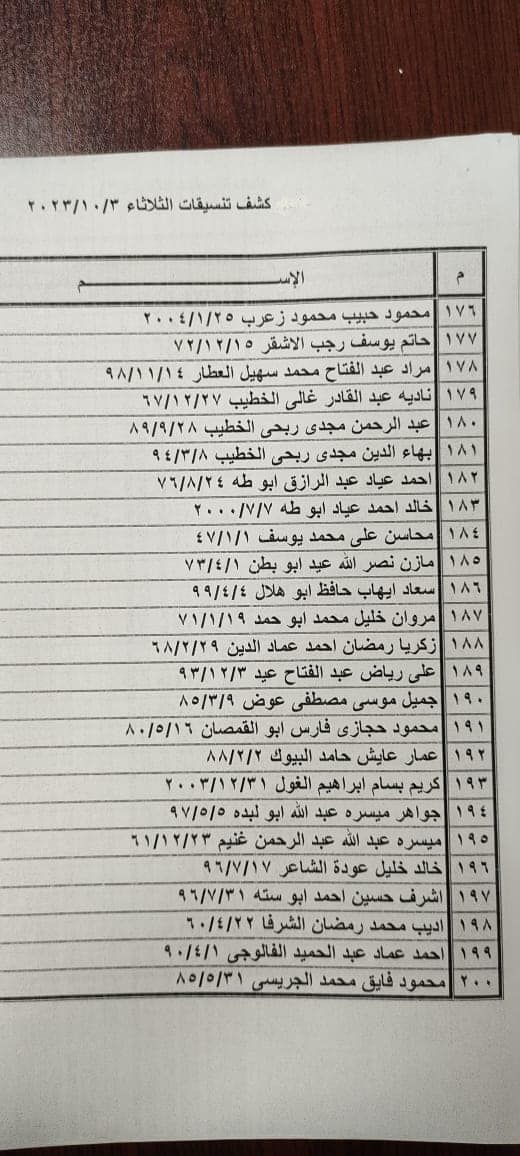 كشف تنسيقات الثلاثاء ٢٠٢٣/١٠/٣
م الإســـــــم
١٧٦ محمود حبيب محمود زعرب ٢٠٠٤/١/٢٥
١٧٧ حاتم يوسف رجب الاشقر ٧٢/١٢/١٥
١٧٨ مراد عبد الفتاح محمد سهيل العطار ٩٨/١١/١٤
١٧٩ ناديه عبد القادر غالى الخطيب ٦٧/١٢/٢٧
١٨٠ عبد الرحمن مجدى ربحى الخطيب ٨٩/٩/٢٨
١٨١ بهاء الدين مجدى ربحى الخطيب ٩٤/٣/٨
١٨٢ احمد عياد عبد الرازق ابو طه ٧٦/٨/٢٤
١٨٣ خالد احمد عياد ابو طه ٢٠٠٠/٧/٧
١٨٤ محاسن على محمد يوسف ٤٧/١/١
١٨٥ مازن نصر الله عيد ابو بطن ٧٣/٤/١
١٨٦ سعاد ايهاب حافظ ابو هلال ٩٩/٤/٤
١٨٧ مروان خليل محمد ابو حمد ٧١/١/١٩
١٨٨ زكريا رمضان احمد عماد الدين ٦٨/٢/٢٩
١٨٩ على رياض عبد الفتاح عيد ٩٣/١٢/٣
١٩٠ جميل موسى مصطفى عوض ٨٥/٣/٩
١٩١ محمود حجازى فارس ابو القمصان ٨٠/٥/١٦
١٩٢ عمار عايش حامد البيوك ٨٨/٢/٢
١٩٣ كريم بسام ابراهيم الغول ٢٠٠٣/١٢/٣١
١٩٤ جواهر ميسره عبد الله ابو لبده ٩٧/٥/٥
١٩٥ ميسره عبد الله عبد الرحمن غنيم ٦١/١٢/٢٣
١٩٦ خالد خليل عودة الشاعر ٩٦/٧/١٧
١٩٧ اشرف حسين احمد ابو سته ٩٦/٧/٣١
١٩٨ اديب محمد رمضان الشرفا ٦٠/٤/٢٢
١٩٩ احمد عماد عبد الحميد الفالوجى ٩٠/٤/١
٢٠٠ محمود فايق محمد الجريسى ٨٥/٥/٣١